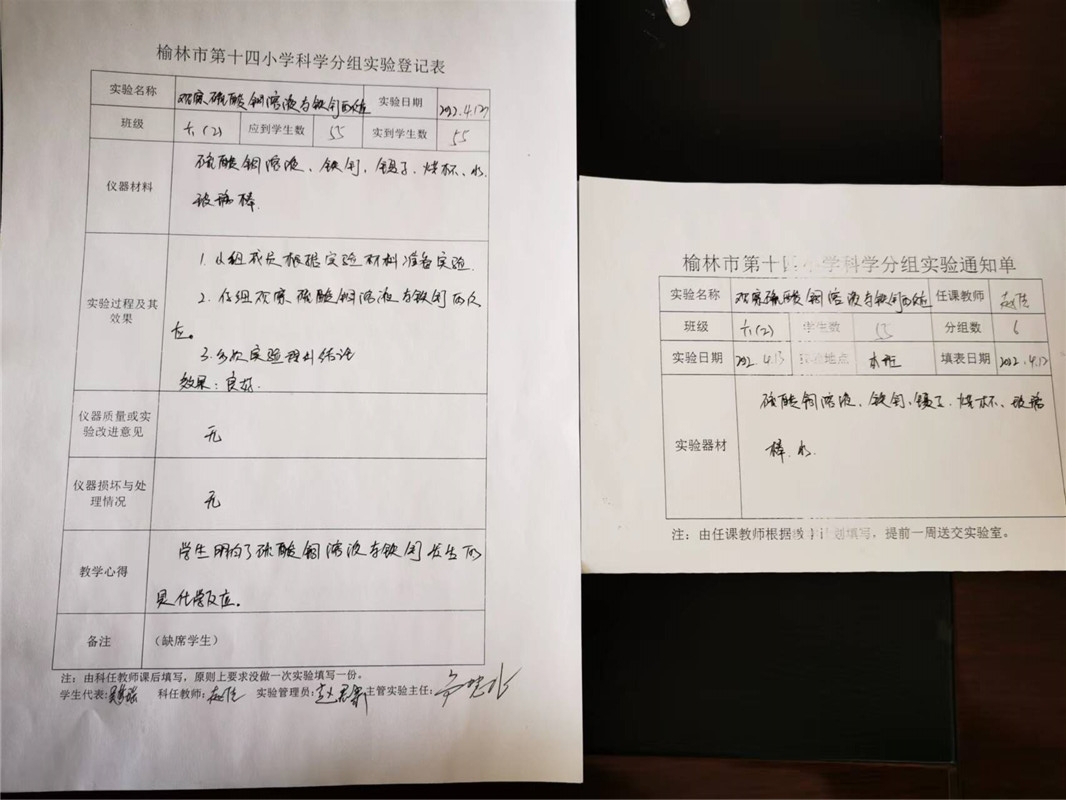 榆林市第十四小学科学分组实验登记表
实验名称 观察硫酸铜溶液与铁钉的反应 实验日期
班级 六(2) 应到学生数 55 实到学生数 55
仪器材料 硫酸铜溶液、铁钉、镊子、烧杯、水
玻璃棒
实验过程及其效果
1.小组成员根据实验材料准备实验.
2.仔细观察硫酸铜溶液与铁钉的反
应。
3.多次实验得出结论
效果:良好.
仪器质量或实验改进意见 无
仪器损坏与处理情况 无
教学心得 学生明白了硫酸铜溶液与铁钉发生的
是化学反应。
备注 (缺席学生)
注:由科任教师课后填写,原则上要求没做一次实验填写一份。
学生代表: 科任教师: 实验管理员: 主管实验主任:
榆林市第十四小学科学分组实验通知单
实验名称 观察硫酸铜溶液与铁钉的反应 任课教师
班级 六(2) 学生数 55 分组数 6
实验日期 2022.4.13 实验地点 本班 填表日期
实验器材 硫酸铜溶液、铁钉、镊子、烧杯、玻璃
棒、水
注:由任课教师根据教学计划填写,提前一周送交实验室。